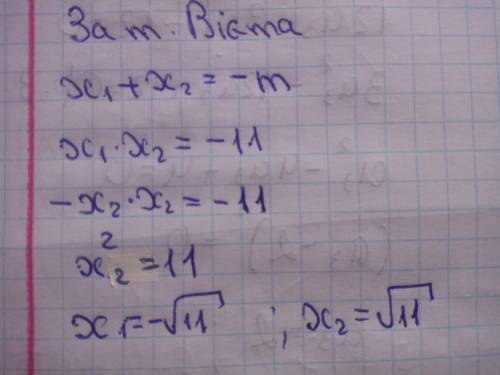 За т. Вієта
x₁ + x₂ = -m
x₁ · x₂ = -11
-x₂ · x₂ = -11
x₂² = 11
x₁ = -√11 ; x₂ = √11